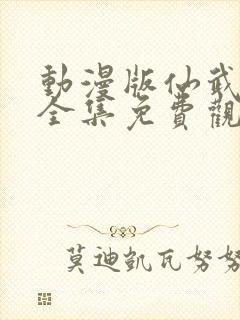 動漫版仙武
全集免費觀
莫迪凱瓦努努